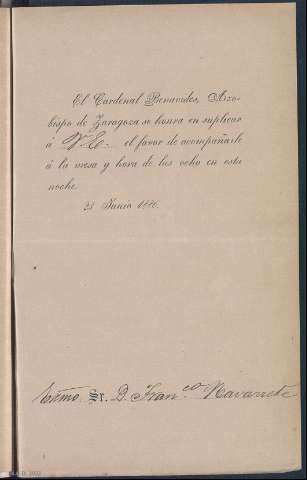 El Cardenal Benavides, Arzo-
bispo de Zaragoza se honra en suplicar
á V. E. el favor de acompañarle
á la mesa y hora de las ocho en esta
noche.
23 Junio 1886.
Exmo. Sr. D. Fran.co Navarrete